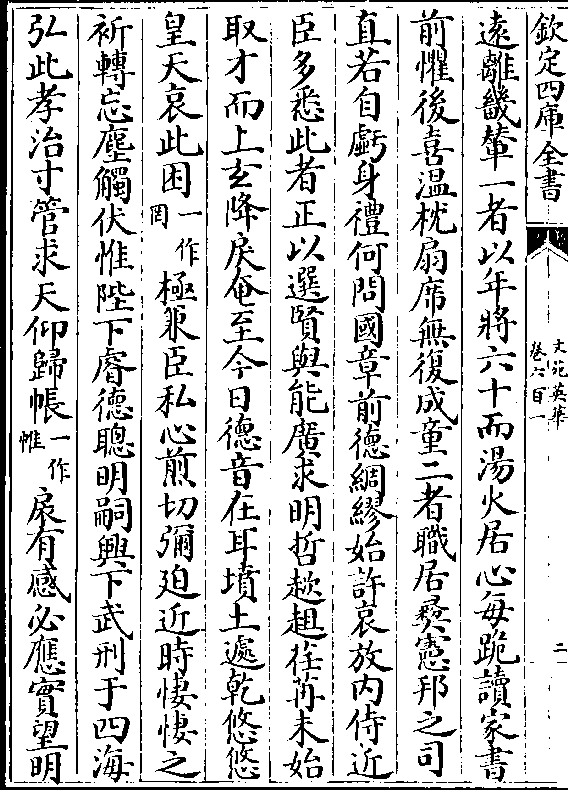 欽定四庫全書
文苑英華
卷六百一
二
遠離畿輦一者以年將六十而湯火居心每跪讀家書
前懼後喜温枕扇席無復成童二者職居彛憲邦之司
直若自虧身禮何問國章前德綢繆始許哀放内侍近
臣多悉此者正以選賢與能廣求明哲趑趄荏苒未始
取才而上玄降戾奄至今日德音在耳墳土遽乾悠悠
皇天哀此困一作罔極兼臣私心煎切彌迫近時悽悽之
祈轉忘塵觸伏惟陛下睿德聰明嗣興下武刑于四海
弘此孝治寸管求天仰歸帳一作惟扆有感必應實望明